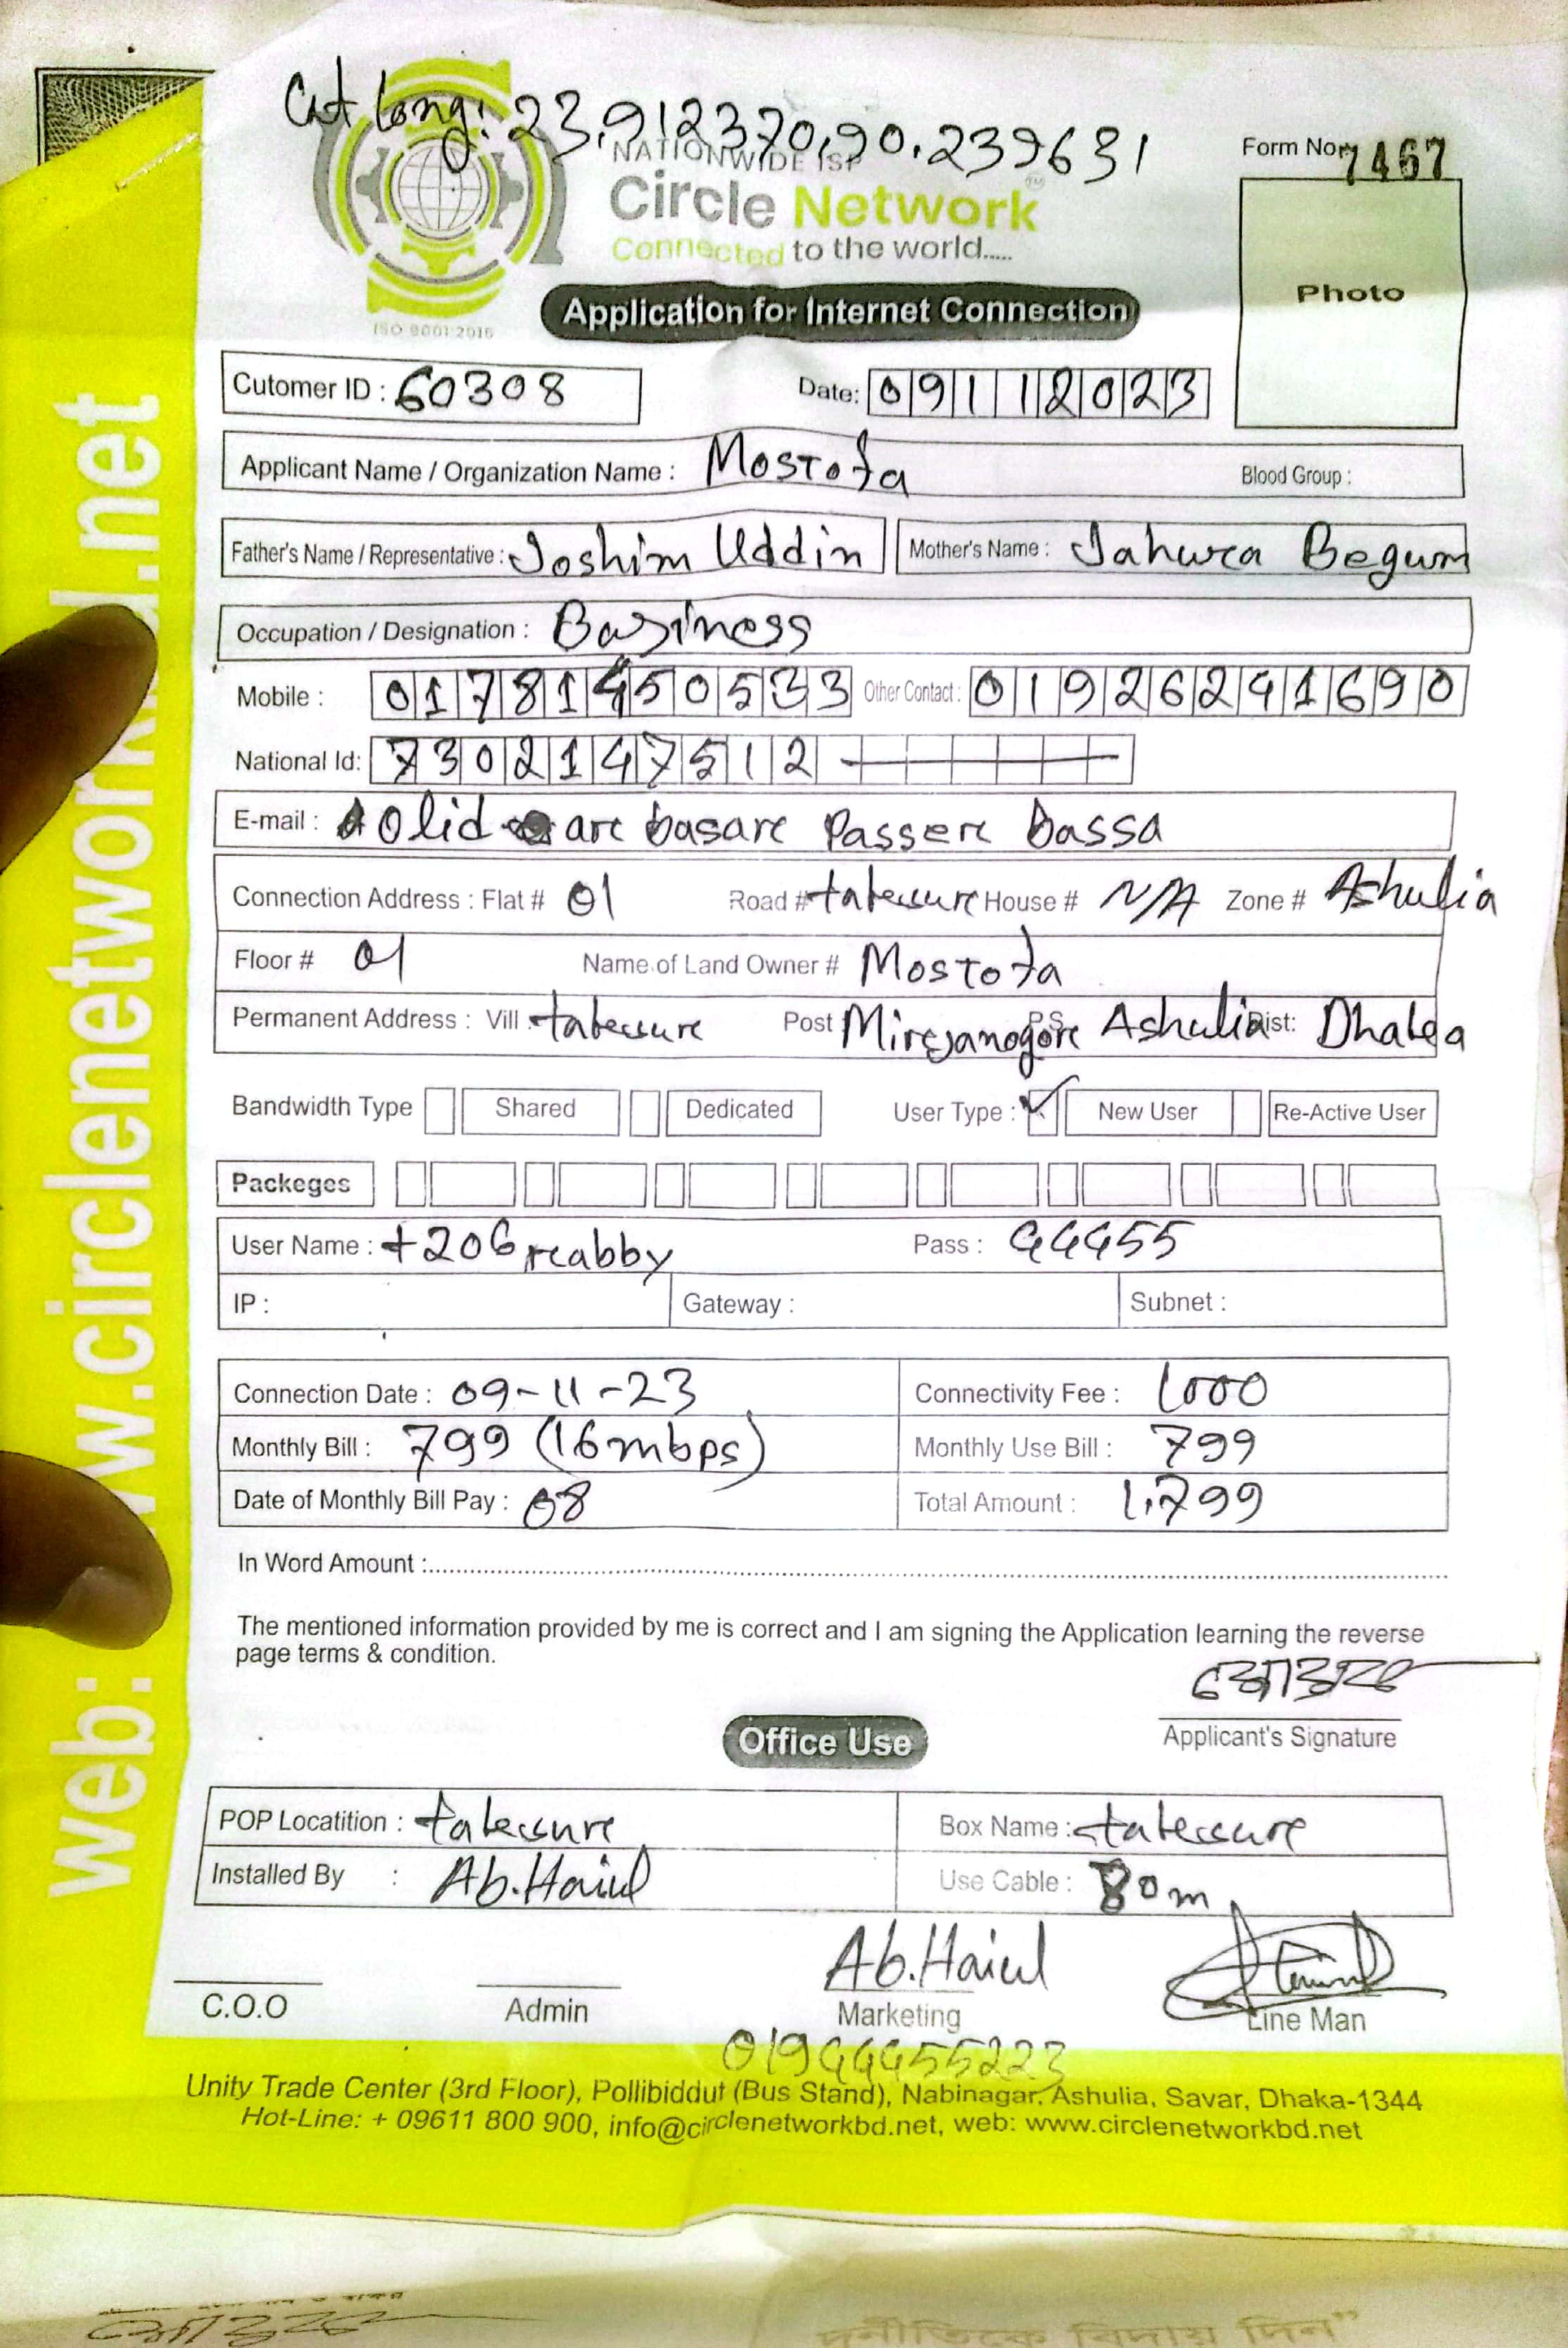 Cat Long: 23.912370,90.239631
NATIONWIDE ISP
Circle Network™
Connected to the world.....
ISO 9001:2015
Form No: 7467
Photo
Application for Internet Connection
Cutomer ID : 60308 Date: 09112023
Applicant Name / Organization Name : Mostofa Blood Group :
Father's Name / Representative : Joshim Uddin Mother's Name : Jahura Begum
Occupation / Designation : Business
Mobile : 01781450533 Other Contact : 01926241690
National Id: 7302147512
E-mail : olid are basare Passere bassa
Connection Address : Flat # 01 Road # House # N/A Zone # Ashulia
Floor # 01 Name of Land Owner # Mostofa
Permanent Address : Vill : Post P.S Ashulia Dist: Dhaka
Bandwidth Type Shared Dedicated User Type : ✓ New User Re-Active User
Packeges
User Name : t206reabby Pass : 44455
IP : Gateway : Subnet :
Connection Date : 09-11-23 Connectivity Fee : 1000
Monthly Bill : 799 (16mbps) Monthly Use Bill : 799
Date of Monthly Bill Pay : 08 Total Amount : 1,799
In Word Amount :
The mentioned information provided by me is correct and I am signing the Application learning the reverse
page terms & condition.
Applicant's Signature
Office Use
POP Locatition : Box Name :
Installed By : Ab.Haiul Use Cable : 80m
Ab.Haiul
C.O.O Admin Marketing Line Man
01944455223
Unity Trade Center (3rd Floor), Pollibiddut (Bus Stand), Nabinagar, Ashulia, Savar, Dhaka-1344
Hot-Line: + 09611 800 900, info@circlenetworkbd.net, web: www.circlenetworkbd.net
দুর্নীতিকে বিদায় দিন"